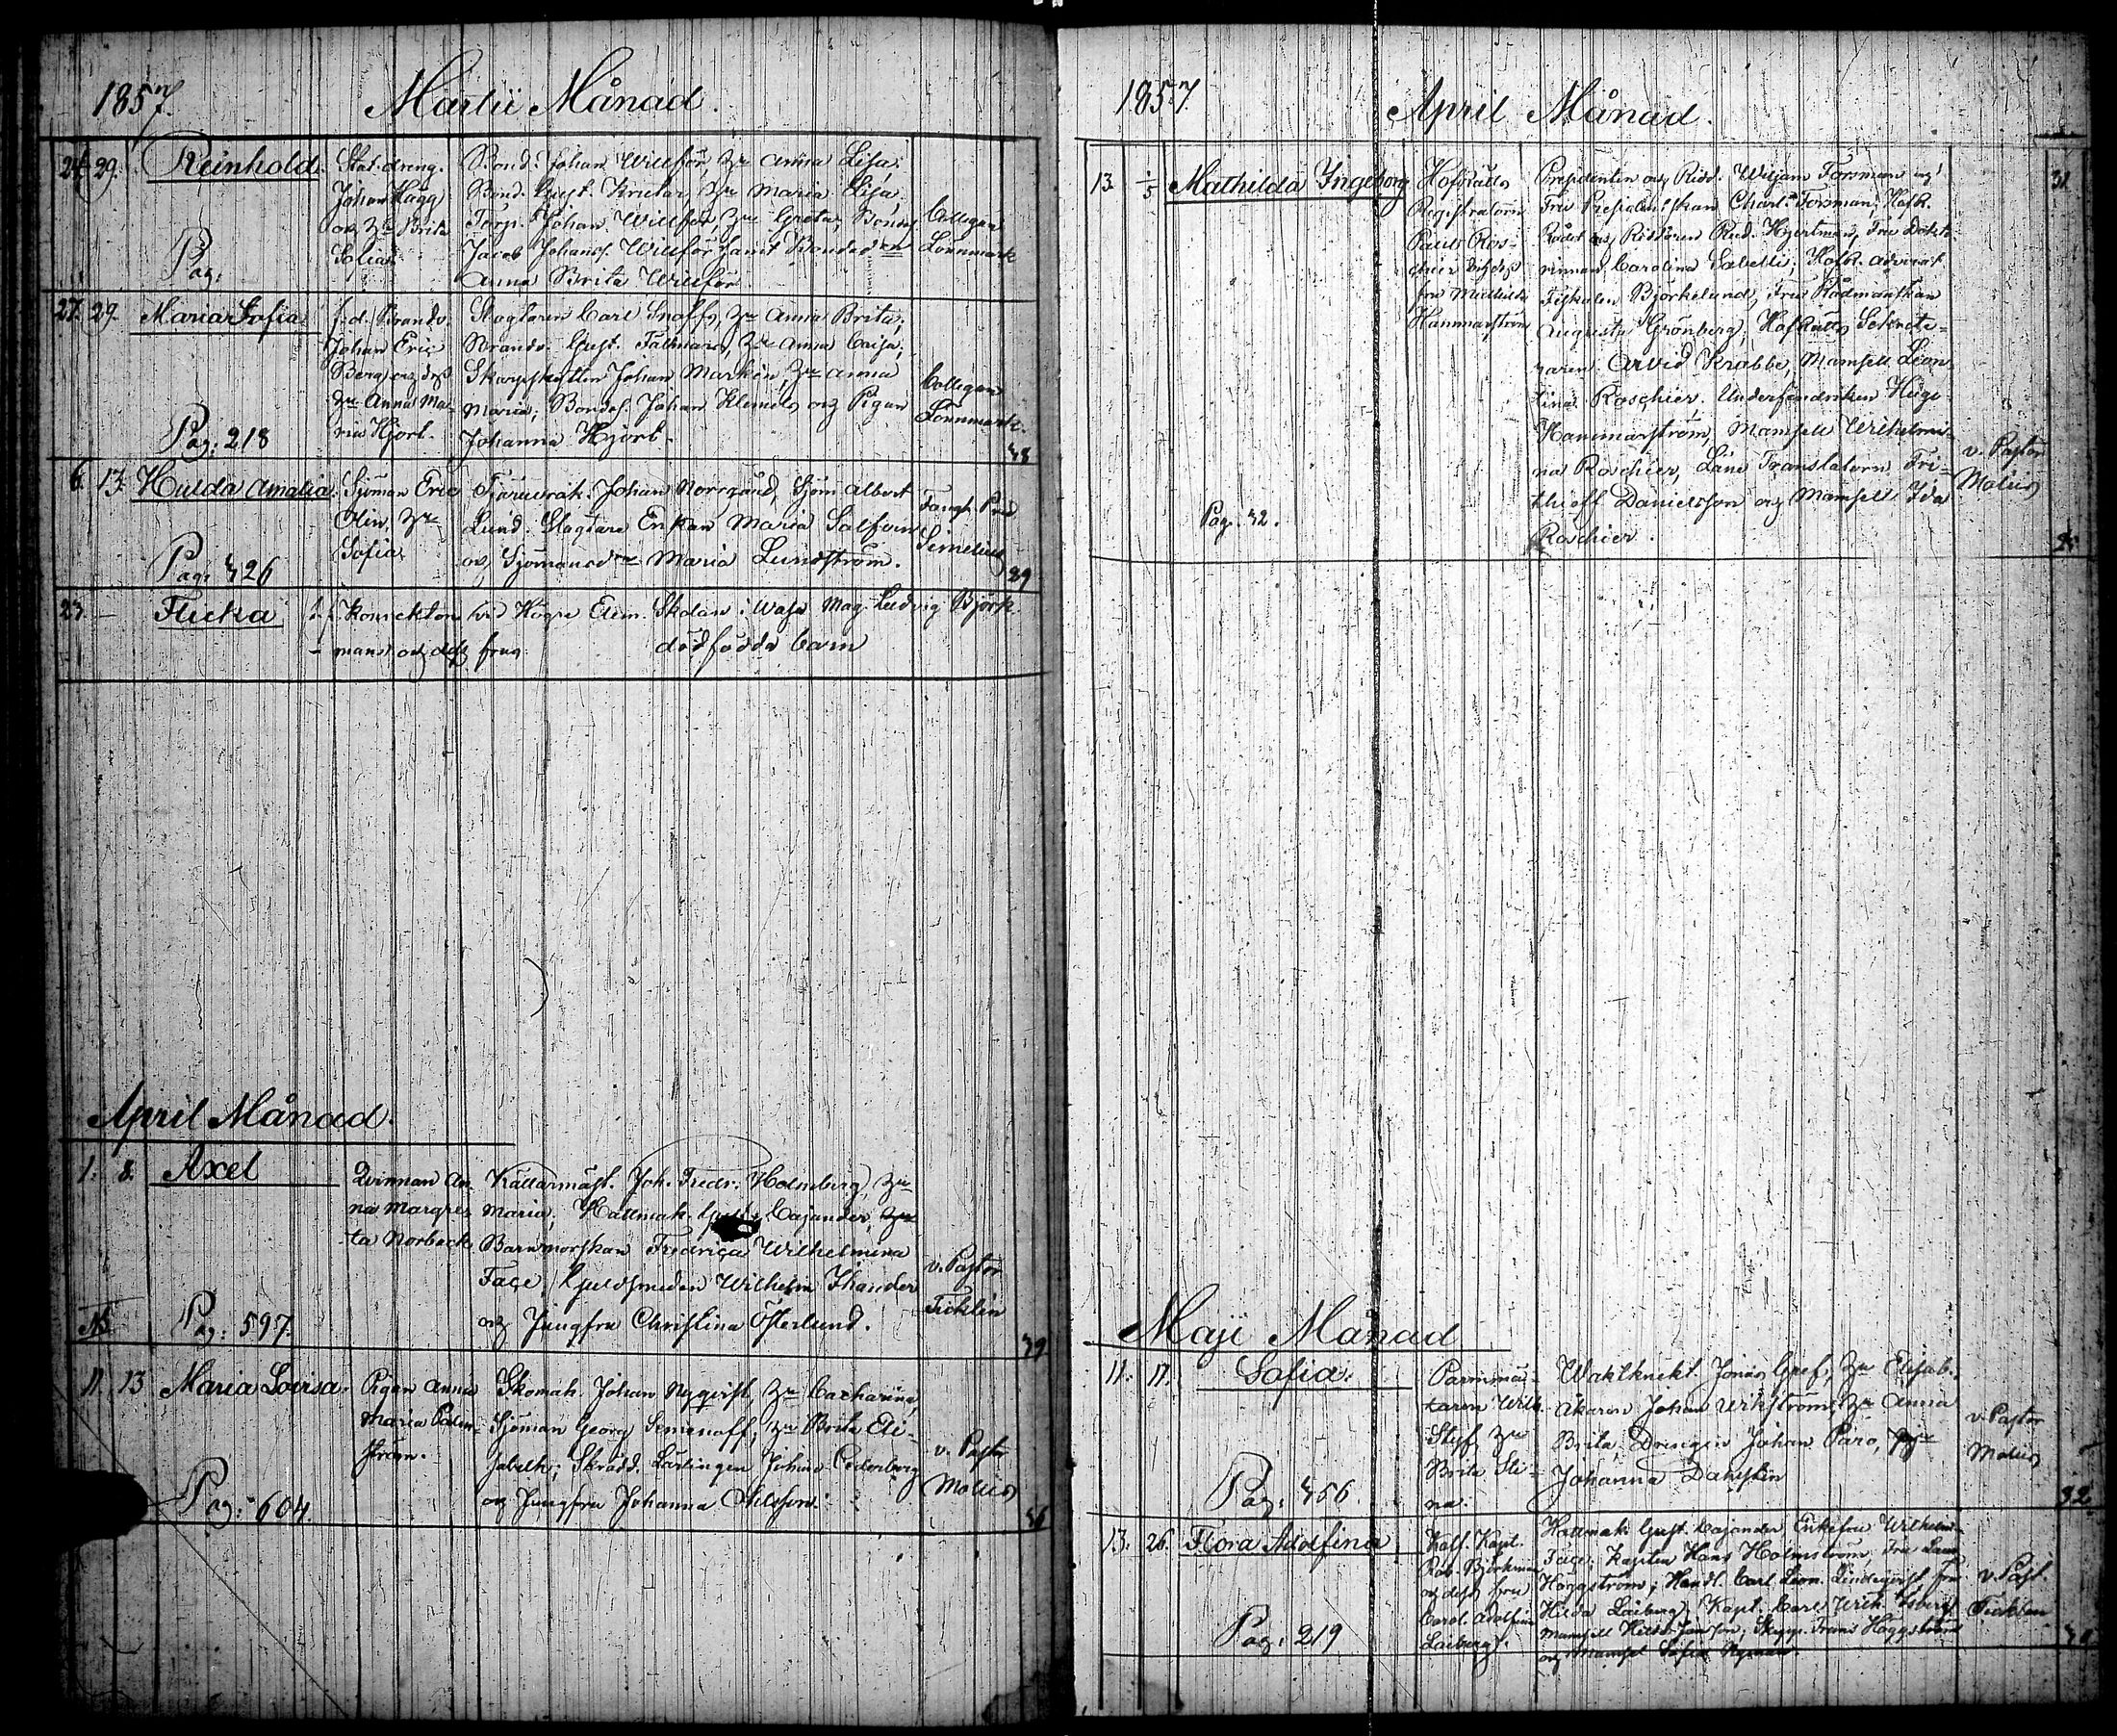 1857. Martii Månad.
24. 29. Reinhold. Stat-dreng.
Johan Hägg
och Hu Brita
Sofia
Pag:
Bond. Johan Willför, Hu Anna Lisa;
Bond. Gust. Hu Maria Lisa,
Torp. Johan Willför, Hu Greta, Bonds.
Jacob Johans. Willför samt Bonded.
Anna Brita Willför
Collegan
Lönnmark
27. 29. Maria Sofia f.d. Brandv.
Johan Eric
Berg och dess
Hu Anna Ma-
ria Hjort.
Pag: 218
Slagtaren Carl Hu Anna Brita;
Brandv. Gust. Fältmars, Hu Anna Caisa;
Skarpskytten Johan Markén, Hu Anna
Maria; Bondes. Johan Klemets och Pigan
Johanna Hjort.
Collegan
Lönnmark.
48
6. 13. Hulda Amalia. Sjöman Eric
Olin, Hu
Sofia
Pag: 426
Johan Norrgård, Sjöm Albert
Lund. Slagtare Enkan Maria
och Sjömansd. Maria Lundström.
Fångh. Pred.
Simelius
29
23. — Flicka Konrektorn vid Högre Elem. Skolan i Wasa Mag. Ludvig Björk-
mans och dess frus dödfödda barn
April Månad.
1. 8. Axel
Qvinnan An-
na Margre-
ta Norback
Källarmäst. Joh. Fredr. Holmberg, Hu
Maria; Hattmak. Gust. Cajander,
Barnmorskan Fredrica Wilhelmina
Guldsmeden Wilhelm Thander
och Jungfru Christina Österlund.
v. Pastor
Ticklén
Pag: 597.
29
11. 13 Maria Lovisa.
Pigan Anna
Maria Palm-
ström.
Skomak. Johan Nyqvist, Hu Catharina,
Sjöman Georg Semenoff, Hu Brita Eli-
sabeth; Skrädd. Lärlingen Johan Cederberg
och Jungfru Johanna Ohlsson.
v. Pastor
Molius
Pag: 604.
1857 April Månad.
13. 1/5 Mathilda Yngeborg
Hofrätts
Registratorn
Paulus Ros-
chier och dess
fru Mathilda
Hammarström
Presidenten och Ridd. Wiljam Forsman och
Fru Presidentskan Charl. Forsman; Hofr.
Rådet och Riddaren Rud. Hjertman, Fru Dokto-
rinnan Carolina Sabelli; Hofr. Advokat
Fiskalen Björkelund, Fru Rådmanskan
Augusta Grönberg; Hofrätts Sekrete-
raren Arvid Krabbe, Mamsell Leon-
tina Roschier, Underfändriken Hugo
Hammarström, Mamsell Wilhelmi-
na Roschier, Läne Translatorn Fri-
thioff Danielsson och Mamsell Ida
Roschier.
v. Pastor
Molius
Pag. 42.
31
Maji Månad
11. 17. Sofia.
Wilh.
Hu
Brita Sti-
na.
Waktknekt. Jonas Gref, Hu Elisab.
Åkaren Johan Wikström, Hu Anna
Brita, Drengen Johan Paro,
Johanna Dahlsten
v. Pastor
Molius
Pag: 456
32
13. 26. Flora Adolfina
Koff. Kapt.
Rob. Björkman
och dess fru
Carol. Adolfina
Laiberg.
Hattmak. Gust. Cajander, Enkefru Wilhelm.
Kapten Hans Holmström, Fru
Häggström; Handl. Carl Leon. Lindeqvist, fru
Hilda Laiberg, Kapt. Carl Wilh.
Mamsell Hilda Jansson, Skepp. Frans Häggström
och Mamsel Sofia Nyman.
v. Past.
Ticklén
Pag: 219